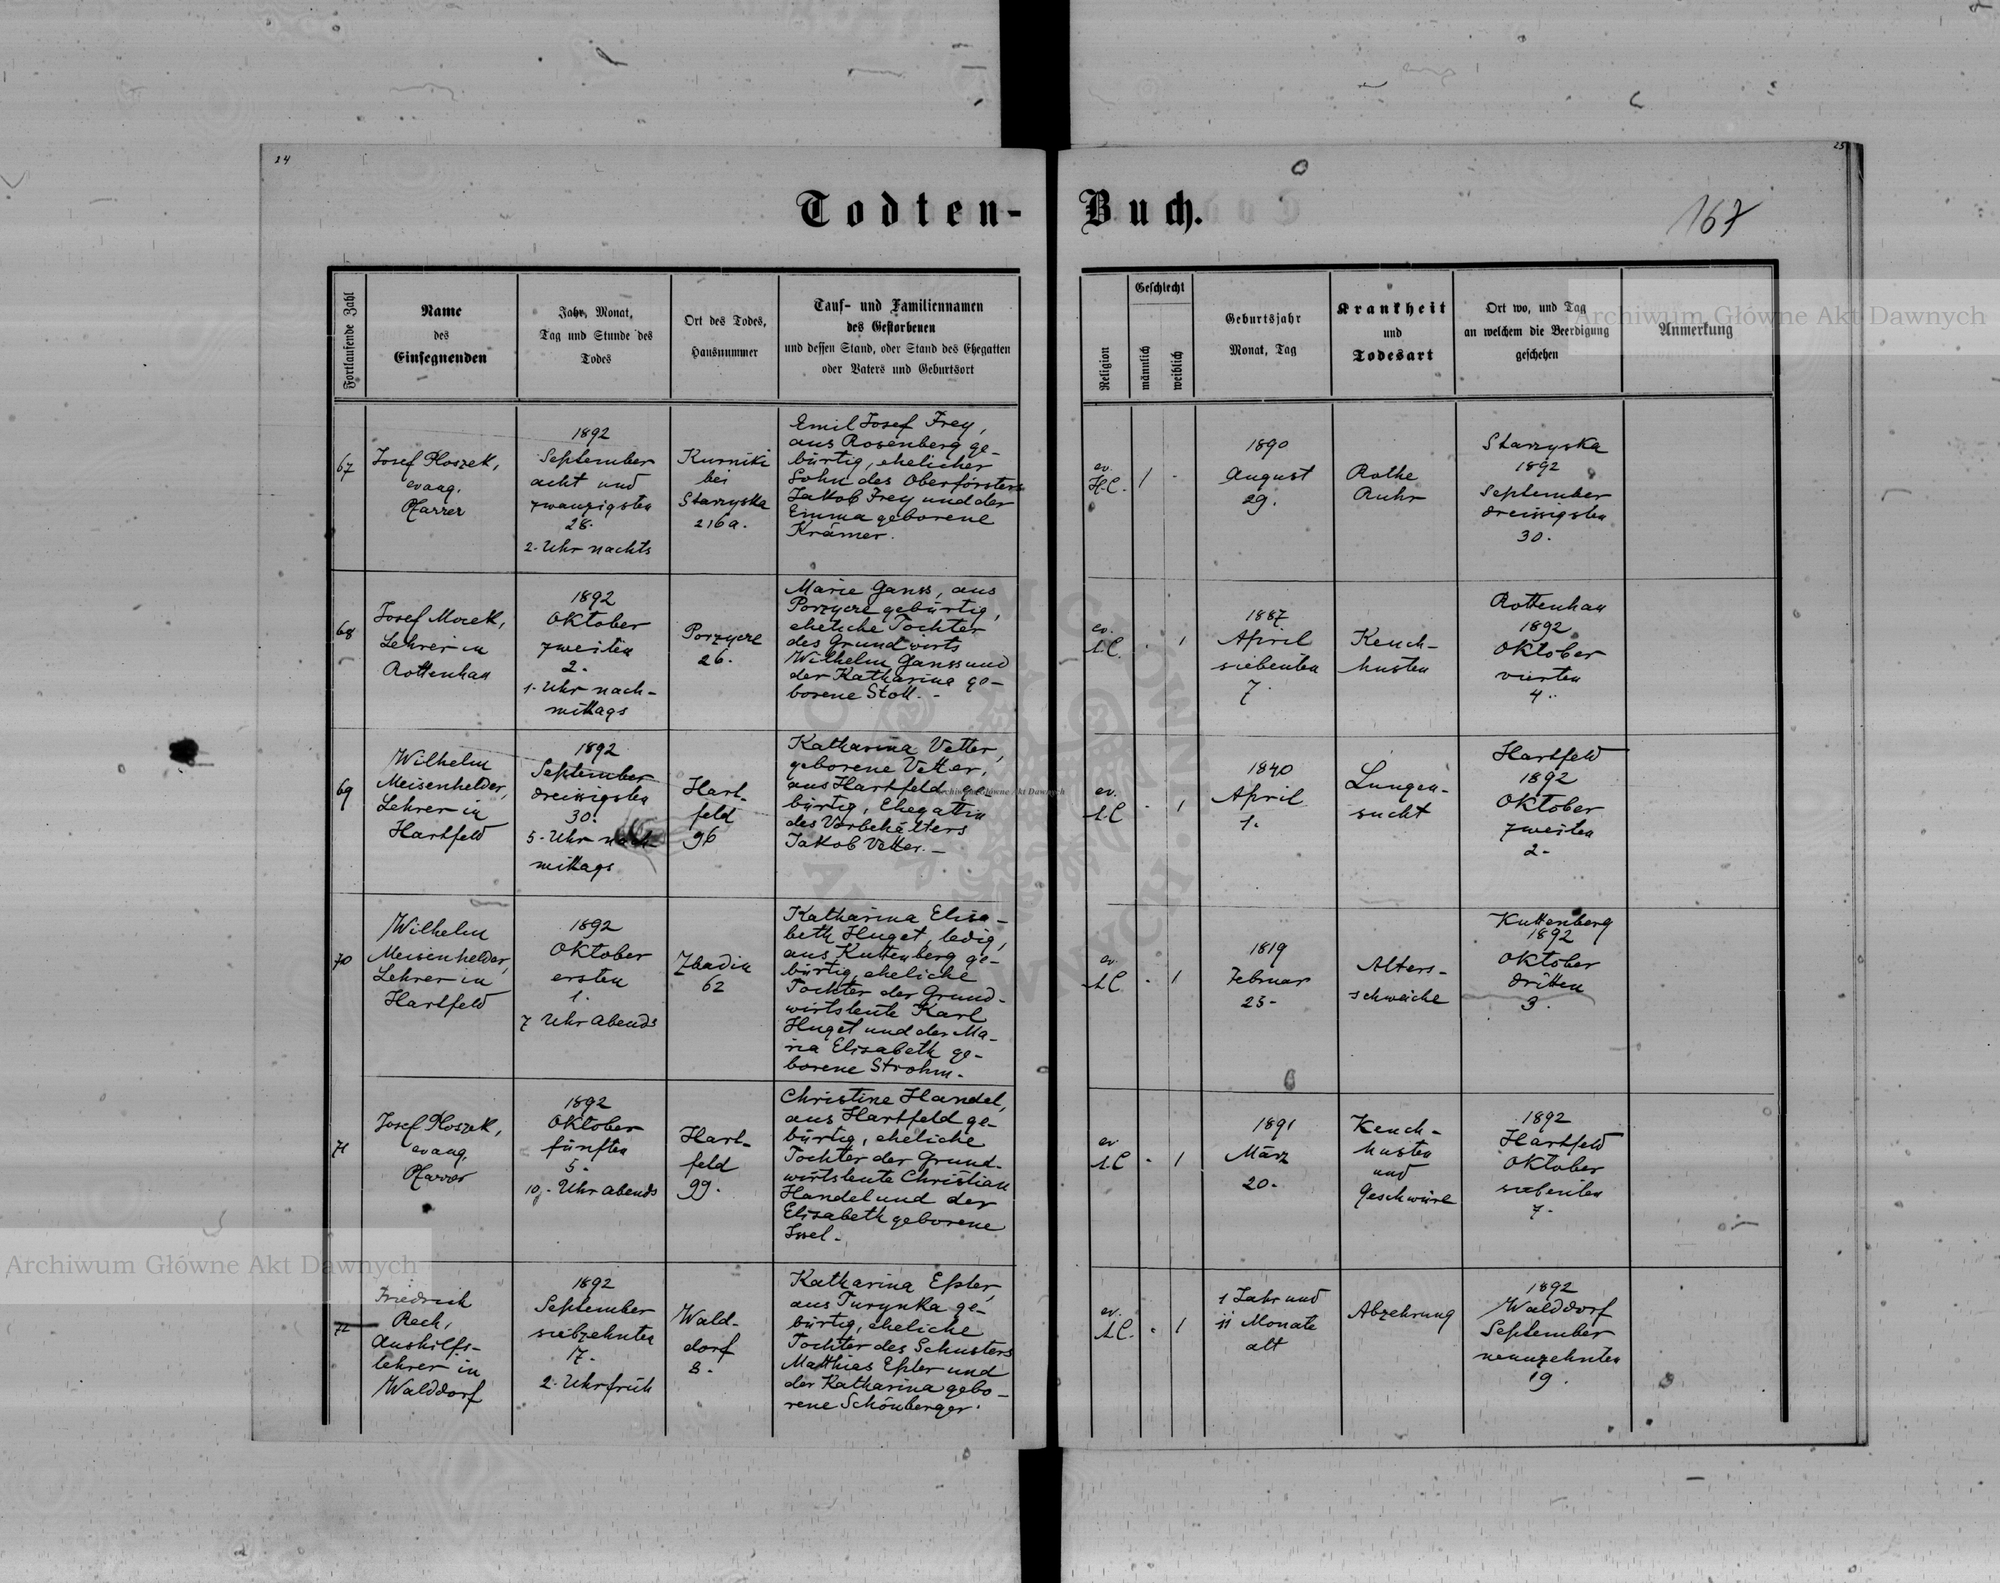 24
25
Todten-Buch.
167
Fortlaufende Zahl
Name
des
Einsegnenden
Jahr, Monat,
Tag und Stunde des
Todes
Ort des Todes,
Hausnummer
Tauf- und Familiennamen
des Gestorbenen
und dessen Stand, oder Stand des Ehegatten
oder Vaters und Geburtsort
Religion
Geschlecht
männlich
weiblich
Geburtsjahr
Monat, Tag
Krankheit
und
Todesart
Ort wo, und Tag
an welchem die Beerdigung
geschehen
Anmerkung
67
Josef Ploszek,
evang.
Pfarrer
1892
September
acht und
zwanzigsten
28.
2. Uhr nachts
Kurniki
bei
Starzyska
216a.
Emil Josef Frey,
aus Rosenberg ge-
bürtig, ehelicher
Sohn des Oberförsters
Jakob Frey und der
Emma geborene
Krämer.
ev.
H.C.
1
-
1890
August
29.
Rothe
Ruhr
Starzyska
1892
September
dreissigsten
30.
68
Josef Mocek,
Lehrer in
Rottenhan
1892
Oktober
zweiten
2.
1. Uhr nach-
mittags
Porzycze
26.
Marie Ganss, aus
Porzycze gebürtig,
eheliche Tochter
des Grundwirts
Wilhelm Ganss und
der Katharina ge-
borene Stoll. -
ev.
A.C.
-
1
1887
April
siebenten
7.
Keuch-
husten
Rottenhan
1892
Oktober
vierten
4.
69
Wilhelm
Meisenhelder,
Lehrer in
Hartfeld
1892
September
dreissigsten
30.
5. Uhr nach
mittags
Hart-
feld
96
Katharina Vetter,
geborene Vetter,
aus Hartfeld ge-
bürtig, Ehegattin
des Vorbehälters
Jakob Vetter. -
ev.
A.C
-
1
1840
April
1.
Lungen-
sucht
Hartfeld
1892
Oktober
zweiten
2-
70
Wilhelm
Meisenhelder,
Lehrer in
Hartfeld
1892
Oktober
ersten
1.
7 Uhr abends
Zbadin
62
Katharina Elisa-
beth Huget, ledig,
aus Kuttenberg ge-
bürtig, eheliche
Tochter der Grund-
wirtsleute Karl
Huget und der Ma-
ria Elisabeth ge-
borene Strohm.
ev.
A.C.
-
1
1819
Februar
25-
Alters-
schwäche
Kuttenberg
1892
Oktober
dritten
3.
71
Josef Ploszek,
evang.
Pfarrer
1892
Oktober
fünften
5-
10. Uhr abends
Hart-
feld
99.
Christine Handel,
aus Hartfeld ge-
bürtig, eheliche
Tochter der Grund-
wirtsleute Christian
Handel und der
Elisabeth geborene
Issel-
ev
A.C
-
1
1891
März
20-
Keuch-
husten
und
Geschwüre
1892
Hartfeld
Oktober
siebenten
7-
72
Friedrich
Rech,
Aushilfs-
lehrer in
Walddorf
1892
September
siebzehnten
17-
2. Uhr früh
Wald-
dorf
8.
Katharina Epler,
aus Turynka ge-
bürtig, eheliche
Tochter des Schusters
Matthias Epler und
der Katharina gebo-
rene Schönberger.
ev.
A.C.
-
1
1 Jahr und
11 Monate
alt
Abzehrung
1892
Walddorf
September
neunzehnten
19.
Archiwum Główne Akt Dawnych
Archiwum Główne Akt Dawnych
Archiwum Główne Akt Dawnych